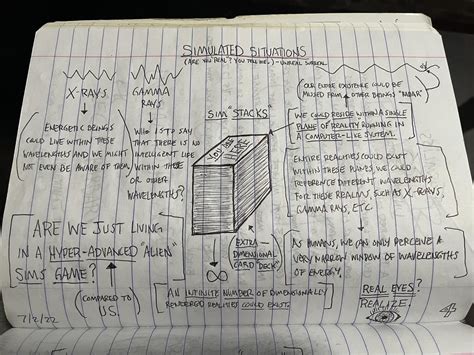 SIMULATED SITUATIONS
(ARE YOU REAL? YOU TELL ME.) - UNREAL SURREAL
X-RAYS
GAMMA
RAYS
ENERGETIC BEINGS
COULD LIVE WITHIN THESE
WAVELENGTHS AND WE MIGHT
NOT EVEN BE AWARE OF THEM.
WHO IS TO SAY
THAT THERE IS NO
INTELLIGENT LIFE
WITHIN THESE
OR OTHER
WAVELENGTHS?
SIM "STACKS"
EXTRA-
DIMENSIONAL
CARD "DECK"
∞
OUR ENTIRE EXISTENCE COULD BE
MISSED FROM OTHER BEINGS' "RADAR"
WE COULD RESIDE WITHIN A SINGLE
PLANE OF REALITY RUNNING IN
A COMPUTER-LIKE SYSTEM.
ENTIRE REALITIES COULD EXIST
WITHIN THESE PLANES, WE COULD
REFERENCE DIFFERENT WAVELENGTHS
FOR THESE REALMS, SUCH AS X-RAYS,
GAMMA RAYS, ETC.
AS HUMANS, WE CAN ONLY PERCEIVE A
VERY NARROW WINDOW OF WAVELENGTHS
OF ENERGY.
ARE WE JUST LIVING
IN A HYPER-ADVANCED "ALIEN"
SIMS GAME?
(COMPARED TO
US.)
AN INFINITE NUMBER OF DIMENSIONALLY
RENDERED REALITIES COULD EXIST.
REAL EYES?
REALIZE.
7/2/22